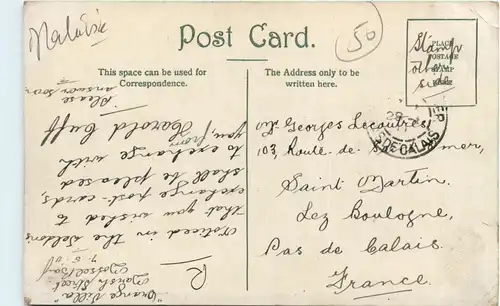 Malaisie
Post Card.
50
This space can be used for
Correspondence.
The Address only to be
written here.
PLACE
POSTAGE
STAMP
HERE
Stamp
other
side
PAS-DE-CALAIS
Georges Lecoutre
103, Route de St Omer,
Saint Martin
Lez Boulogne,
Pas de Calais.
France.
"Orange Villa"
Marsh Street
R
Noticed in the
that you wished to
exchange post-cards,
shall be pleased
to exchange with
you from
Harold Cuff
Please
answer soon